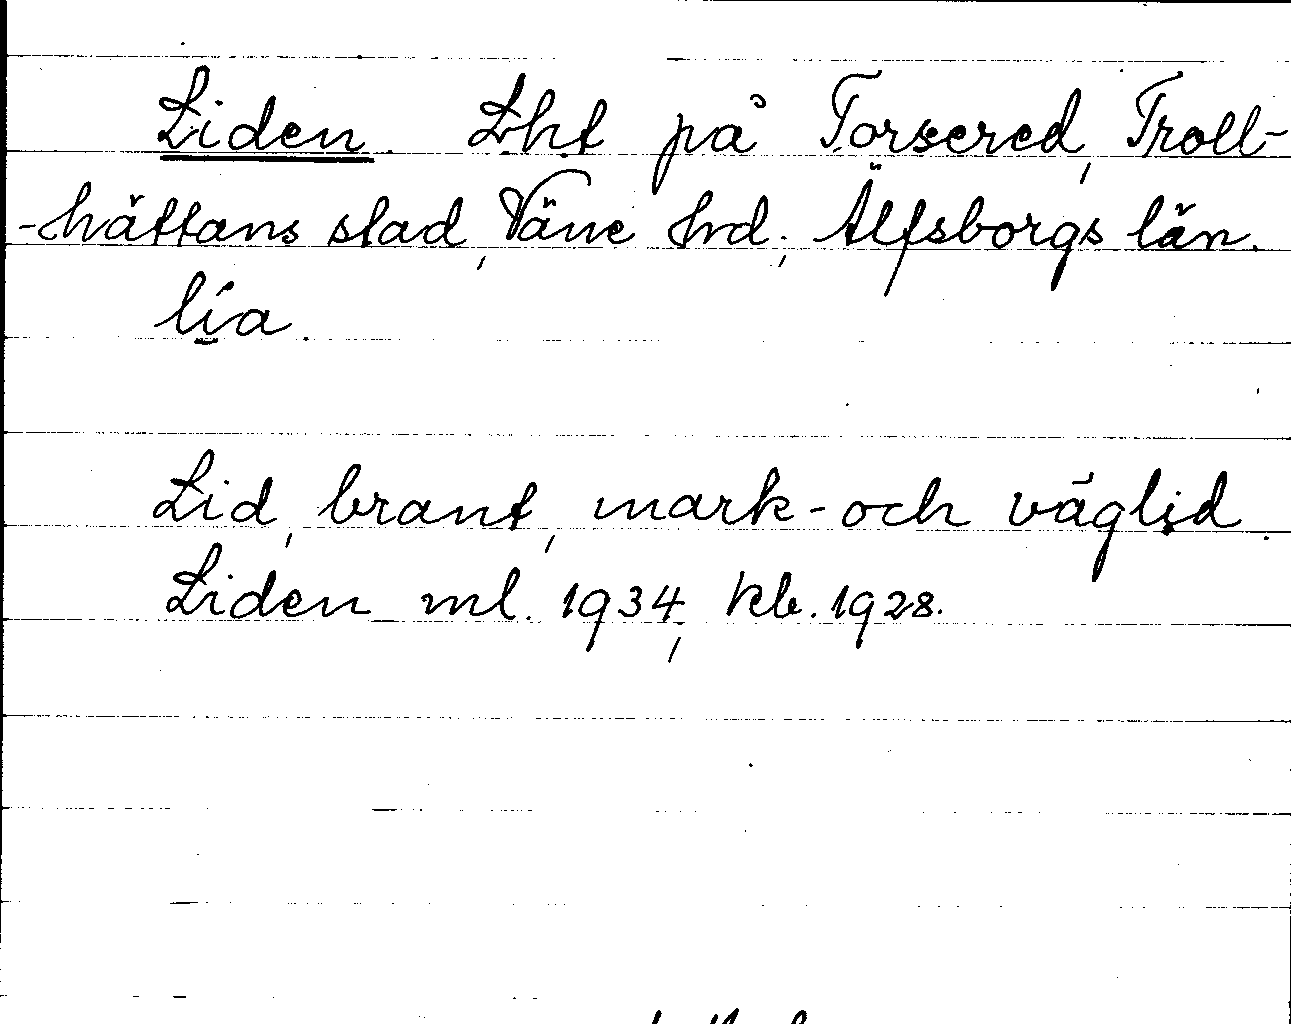 Liden. Lht på Torsered, Troll-
-hättans stad, Väne hrd, Älfsborgs län.
lí̮a.
Lid, brant, mark- och väglid.
Liden ml. 1934, kb. 1928.